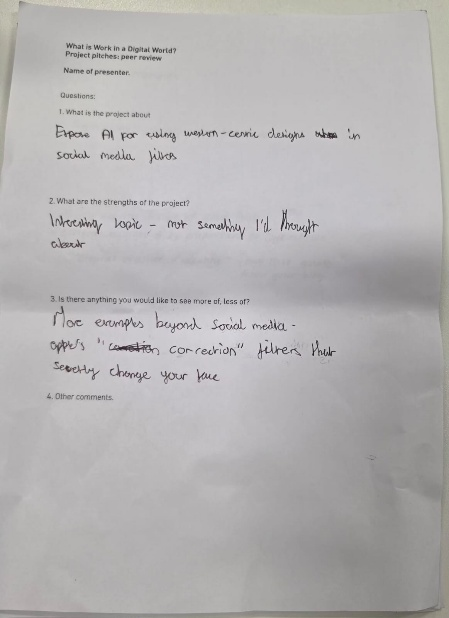 What is Work in a Digital World?
Project pitches: peer review
Name of presenter.
Questions:
1. What is the project about
Expose AI for using western-centric designs in
social media filters
2. What are the strengths of the project?
Interesting topic - not something I'd thought
about
3. Is there anything you would like to see more of, less of?
More examples beyond social media -
"correction" filters that
change your face
4. Other comments.